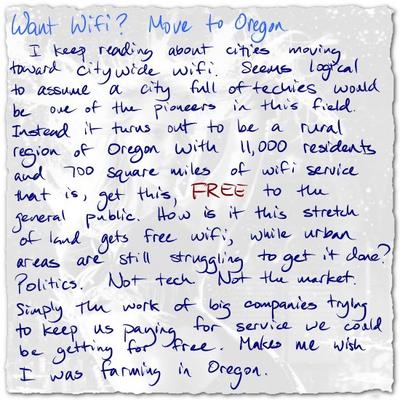 Want Wifi? Move to Oregon
I keep reading about cities moving
toward citywide wifi. Seems logical
to assume a city full of techies would
be one of the pioneers in this field.
Instead it turns out to be a rural
region of Oregon with 11,000 residents
and 700 square miles of wifi service
that is, get this, FREE to the
general public. How is it this stretch
of land gets free wifi, while urban
areas are still struggling to get it done?
Politics. Not tech. Not the market.
Simply the work of big companies trying
to keep us paying for service we could
be getting for free. Makes me wish
I was farming in Oregon.